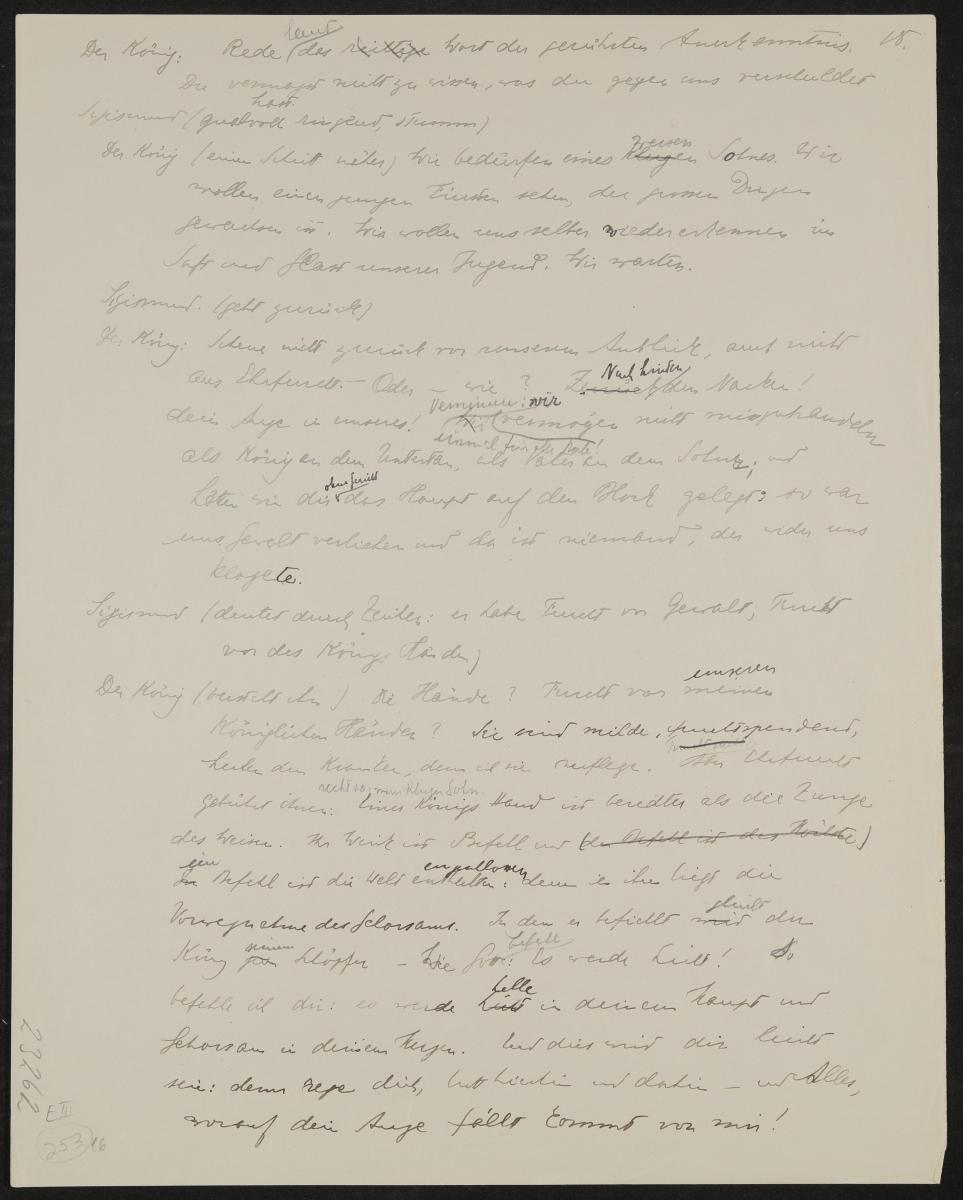 18.
laut
Der König: Rede (das richtige Wort der gerührten Anerkenntnis.
Du vermagst nicht zu wissen, was du gegen uns verschuldet
hast.
Sigismund (qualvoll ringend, stumm)
weisen
Der König (einen Schritt näher) Wir bedürfen eines klugen Sohnes. Wir
wollen einen jungen Fürsten sehen, der grossen Dingen
gewachsen ist. Wir wollen uns selber wiedererkennen im
Saft und Glast unserer Jugend. Wir warten.
Sigismund. (geht zurück)
Der König: Scheue nicht zurück vor unserem Anblick, auch nicht
aus Ehrfurcht. – Oder – wie? Zurück den Nacken!
Nach hinten
dein Auge in unseres! Vernimm: wir vermögen nicht misszuhandeln
einmal für alle Male!
als König an dem Untertan, als Vater an dem Sohn; und
ohne Gericht
hätten wir dir das Haupt auf den Block gelegt: so war
uns Gewalt verliehen und da ist niemand, der wider uns
klagete.
Sigismund (deutet durch Zeichen: er habe Furcht vor Gewalt, Furcht
vor des Königs Händen)
unseren
Der König (versteht ihn) Die Hände? Furcht vor meinen
Königlichen Händen? Sie sind milde, fruchtspendend,
heilen den Kranken, dem ich sie auflege. Ehrfurcht
recht so, mein kluger Sohn.
gebührt ihnen. Eines Königs Hand ist beredter als die Zunge
des Weisen. Ihr Wink ist Befehl und (der Befehl ist das Höchste)
im Befehl ist die Welt enthalten: denn in ihm liegt die
Vorwegnahme des Gehorsams. In dem er befiehlt wird der
gleicht
König seinem Schöpfer – Wie Gott befahl: Es werde Licht! So
helle
befehle ich dir: es werde Licht in deinem Haupt und
Gehorsam in deinem Herzen. Und dies wird dir leicht
sein: denn rege dich, tritt hierhin und dahin – und Alles,
worauf dein Auge fällt kommt von mir!
23262
E III
253 16